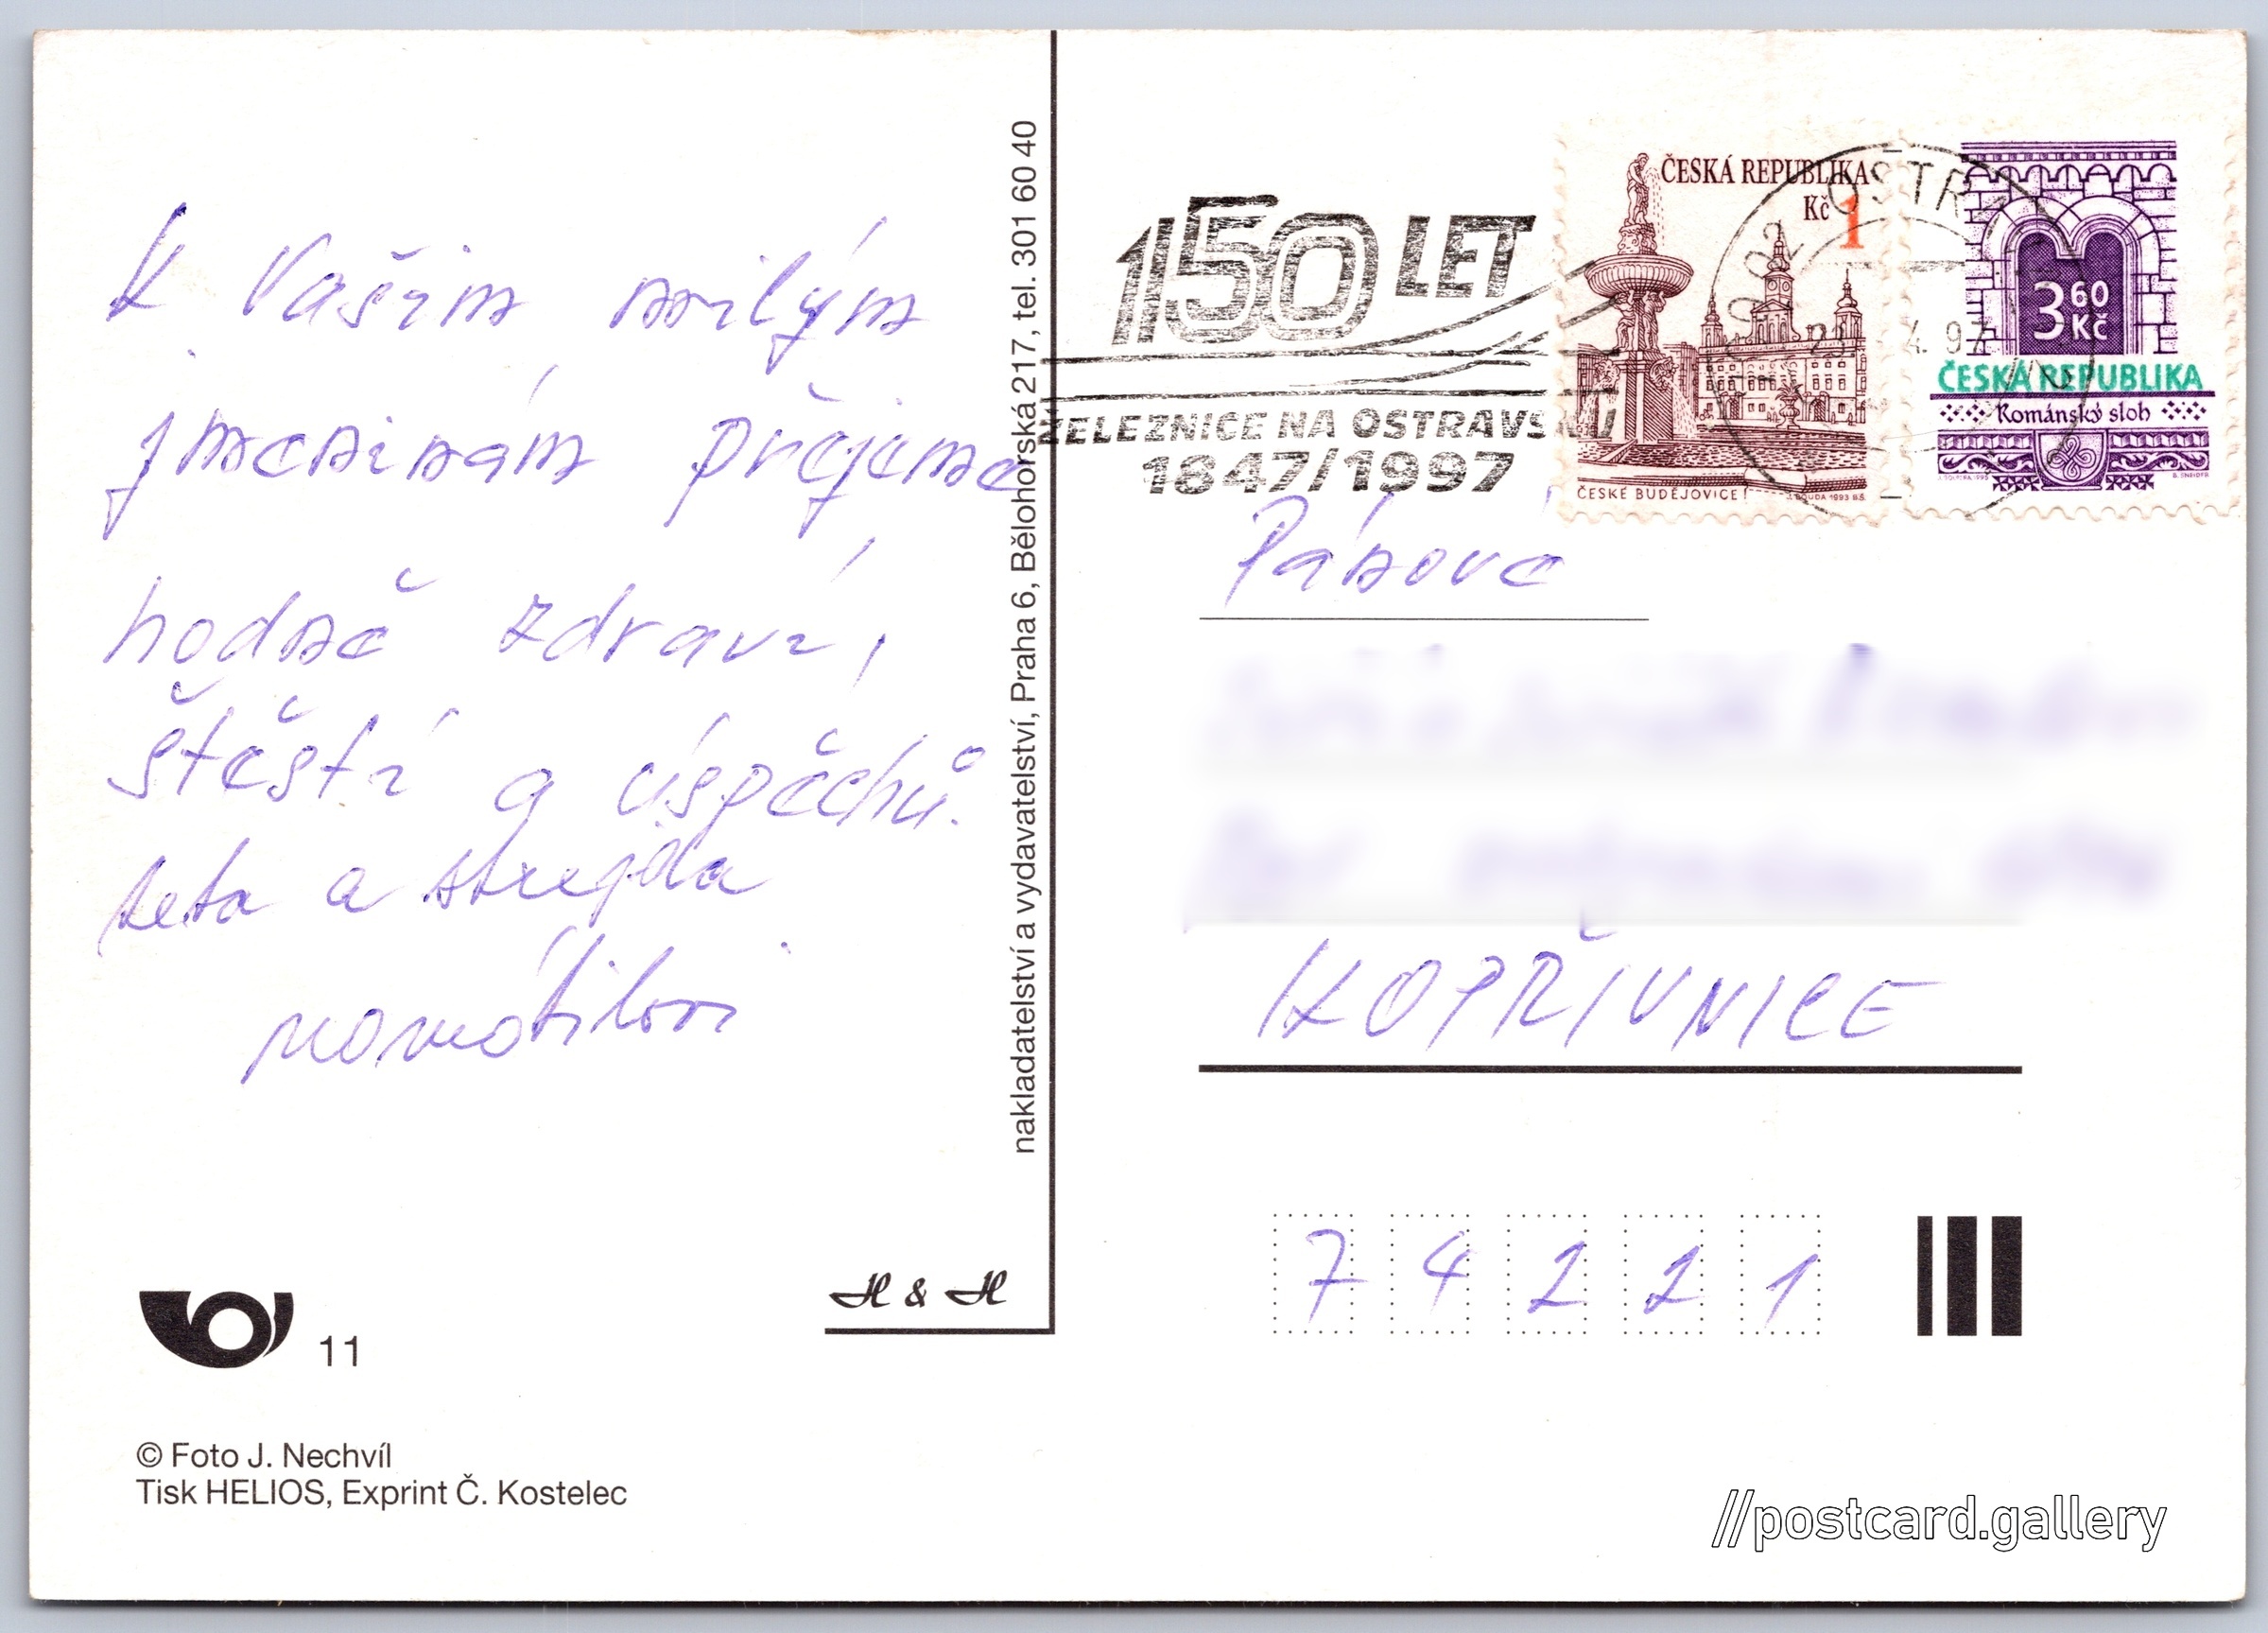 K Vašim milým
jmeninám přejeme
hodně zdraví,
štěstí a úspěchů.
teta a strejda
nakladatelství a vydavatelství, Praha 6, Bělohorská 217, tel. 301 60 40
H & H
11
© Foto J. Nechvíl
Tisk HELIOS, Exprint Č. Kostelec
150 LET
ŽELEZNICE NA OSTRAVSKU
1847/1997
ČESKÁ REPUBLIKA
Kč 1
ČESKÉ BUDĚJOVICE
4. 97
3 60 Kč
ČESKÁ REPUBLIKA
Románský sloh
Pánové
KOPŘIVNICE
74221
//postcard.gallery